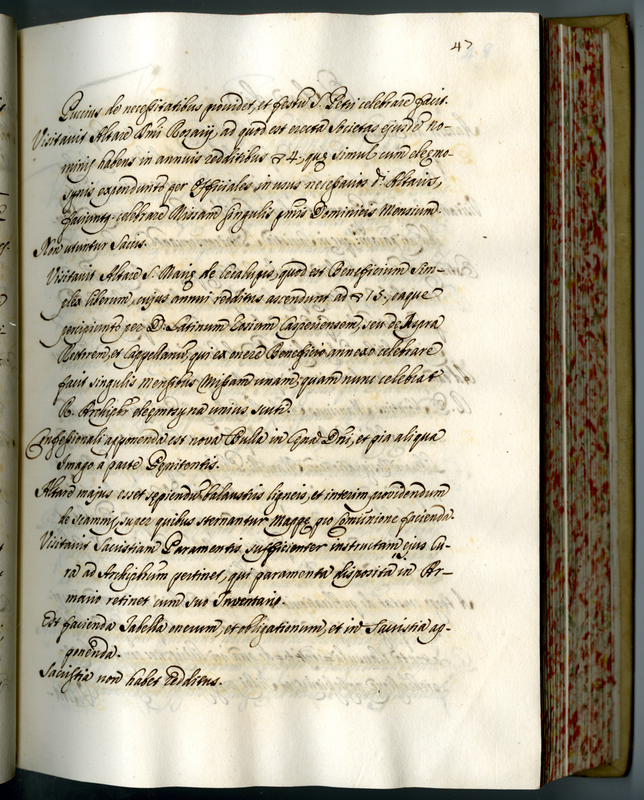 47
de necessitatibus providet, et festũ S. Petri celebrare facit.
Visitavit Altare Smi Rosarij, ad quod est erecta Societas ejusdẽ no-
minis habens in annuis redditibus 4, quę simul cum eleemo-
synis expenduntr per Officiales in usus necessarios di Altaris,
faciuntq. celebrare Missam singulis primis Dominicis Mensium.
Non utuntur Saccis.
Visitavit Altare S. Marię de quod est Beneficium Sim-
plex liberum, cujus annui redditus ascendunt ad 15, eaque
percipiuntr per D. Latinum
Rectorem, et Cappellanũ, qui ex onere Beneficio annexo celebrare
facit singulis mensibus Missam unam, quam nunc celebrat
R. Archipbr eleemosyna unius scuti.
Confessionali apponenda est nova Bulla in Cęna Dñi, et pia aliqua
Imago à parte Pęnitentis.
Altare majus esset sępiendũ balaustris ligneis, et interim providendum
de scamnis, super quibus sternantur Mappę pro Comũnione facienda.
Visitavit Sacristiam Paramentis sufficienter instructam, ejus cu-
ra ad Archipbrum pertinet, qui paramenta disposita in Ar-
mario retinet cum suo Inventario.
Est facienda Tabella onerum, et obligationum, et in Sacristia ap-
ponenda.
Sacristia non habet redditus.